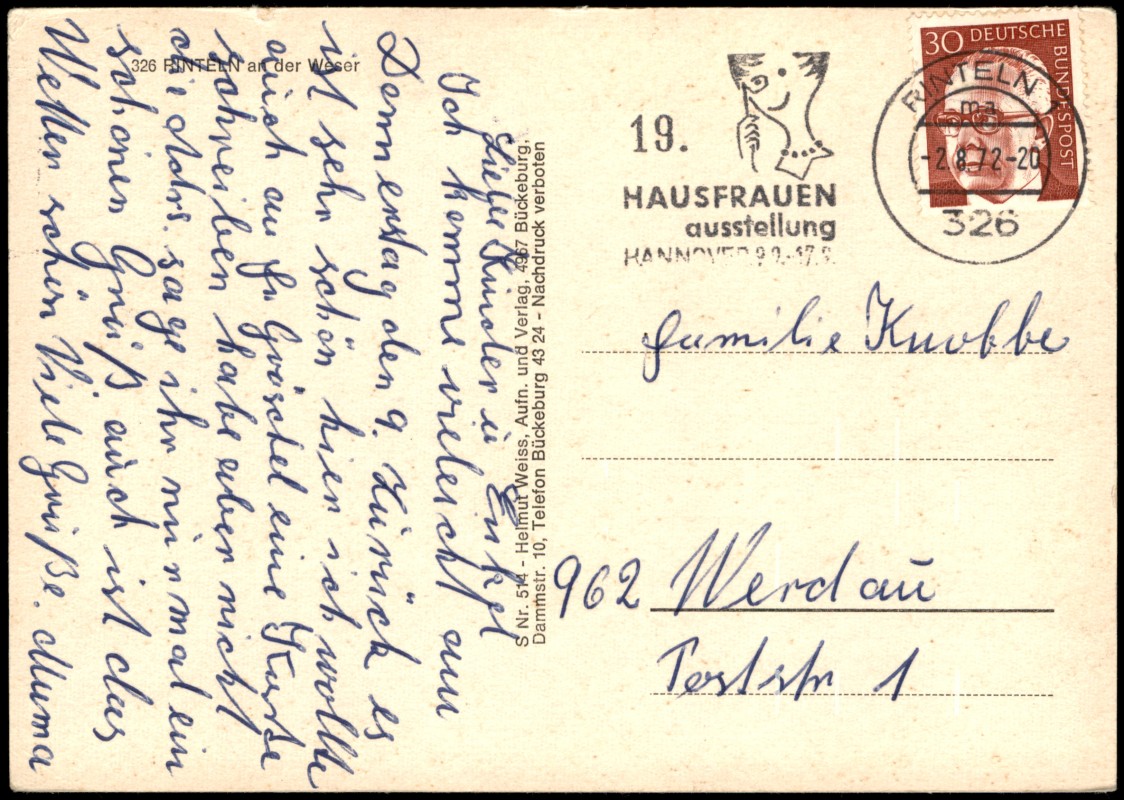 326 RINTELN an der Weser
Liebe Kinder ü Enkel
Ich komme vieleicht am
Donnerstag den 9. Zürück es
ist sehr schön hier ich wollte
auch an fr. Göschel eine Karte
schreiben habe aber nicht
die Adrs. sage ihr nür mal ein
schönen Grüß aüch ist das
Wetter schön Viele Grüße. Muma
S Nr. 514 - Helmut Weiss, Aufn. und Verlag, 4967 Bückeburg,
Dammstr. 10, Telefon Bückeburg 43 24 - Nachdruck verboten
19.
HAUSFRAUEN
ausstellung
HANNOVER 9.9.-17.9.
30 DEUTSCHE BUNDESPOST
RINTELN 1
ma
-2.8.72-20
326
familie Knobbe
962 Werdaü
Poststr 1